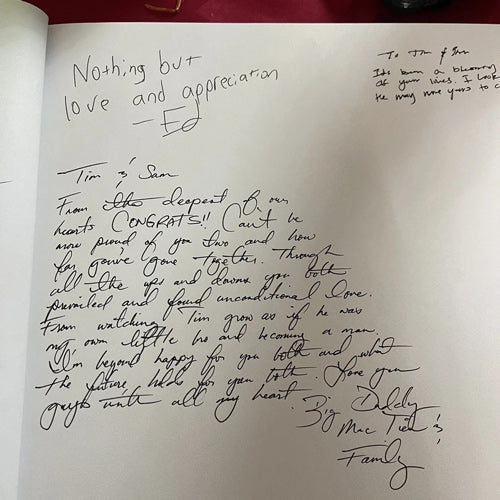 Nothing but
love and appreciation
- Ed
To Tim & Sam
Its been a blessing
of your lives. I look
many more years to c
Tim & Sam
From the deepest of our
hearts CONGRATS!! Can't be
more proud of you two and how
far you've gone together. Through
all the ups and downs you both
prevailed and found unconditional love.
From watching Tim grow as if he was
my own little bro and becoming a man.
I'm beyond happy for you both and what
the future holds for you both. Love you
guys with all my heart.
Big Daddy
Mac &
Family